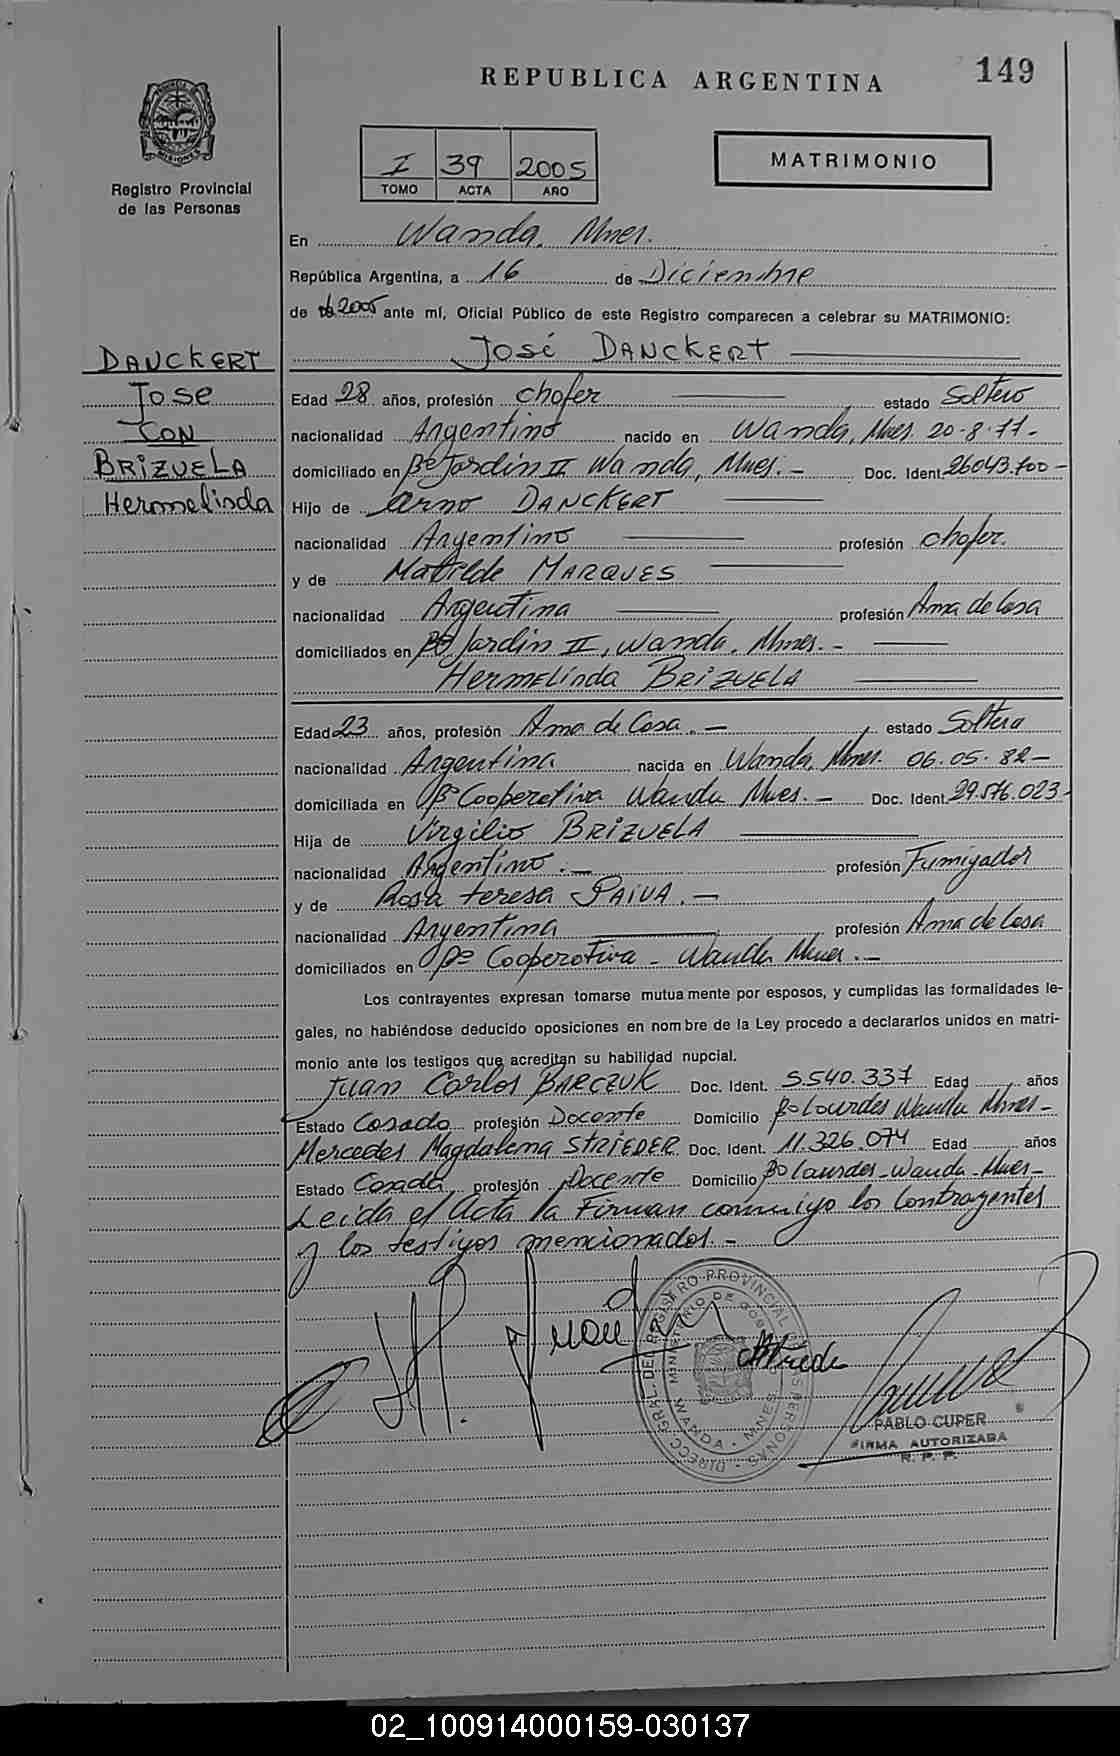 REPUBLICA ARGENTINA
149
PROVINCIA DE MISIONES
Registro Provincial
de las Personas
I 39 2005
TOMO ACTA AÑO
MATRIMONIO
En Wanda, Mnes.
República Argentina, a 16 de Diciembre
de 2005 ante mí, Oficial Público de este Registro comparecen a celebrar su MATRIMONIO:
José DANCKERT
DANCKERT
Jose
CON
BRIZUELA
Hermelinda
Edad 28 años, profesión chofer estado Soltero
nacionalidad Argentino nacido en Wanda, Mnes. 20-8-77-
domiciliado en Bº Jardin II Wanda, Mnes.- Doc. Ident. 26043.700-
Hijo de Arno DANCKERT
nacionalidad Argentino profesión chofer.
y de Matilde MARQUES
nacionalidad Argentina profesión Ama de Casa
domiciliados en Bº Jardin II, Wanda, Mnes.-
Hermelinda BRIZUELA
Edad 23 años, profesión Ama de Casa.- estado Soltera
nacionalidad Argentina nacida en Wanda, Mnes. 06.05.82-
domiciliada en Bº Cooperativa Wanda Mnes.- Doc. Ident. 29.576.023-
Hija de Virgilio BRIZUELA
nacionalidad Argentino.- profesión Fumigador
y de Rosa teresa PAIVA.-
nacionalidad Argentina profesión Ama de Casa
domiciliados en Bº Cooperativa - Wanda Mnes.-
Los contrayentes expresan tomarse mutuamente por esposos, y cumplidas las formalidades le-
gales, no habiéndose deducido oposiciones en nombre de la Ley procedo a declararlos unidos en matri-
monio ante los testigos que acreditan su habilidad nupcial.
Juan Carlos BARCZUK Doc. Ident. 5.540.337 Edad años
Estado Casado profesión Docente Domicilio Bº Lourdes Wanda Mnes-
Mercedes Magdalena STRIEDER Doc. Ident. 11.326.074 Edad años
Estado Casada profesión Docente Domicilio Bº Lourdes-Wanda-Mnes-
Leida el Acta la Firman conmigo los Contrayentes
y los testigos mencionados.-
DIRECC. GRAL. DEL REGISTRO PROVINCIAL DE LAS PERSONAS
MINISTERIO DE GOB.
WANDA - MNES
PABLO CUPER
FIRMA AUTORIZADA
R. P. P.
02_100914000159-030137